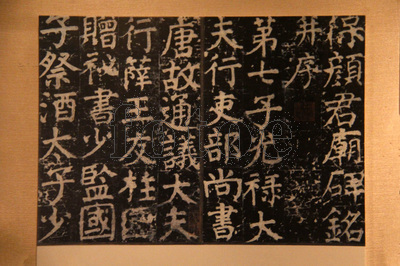 保顏君廟碑銘
并序
第七子光祿大
夫行吏部尚書
唐故通議大夫
行薛王友柱國
贈祕書少監國
子祭酒太子少